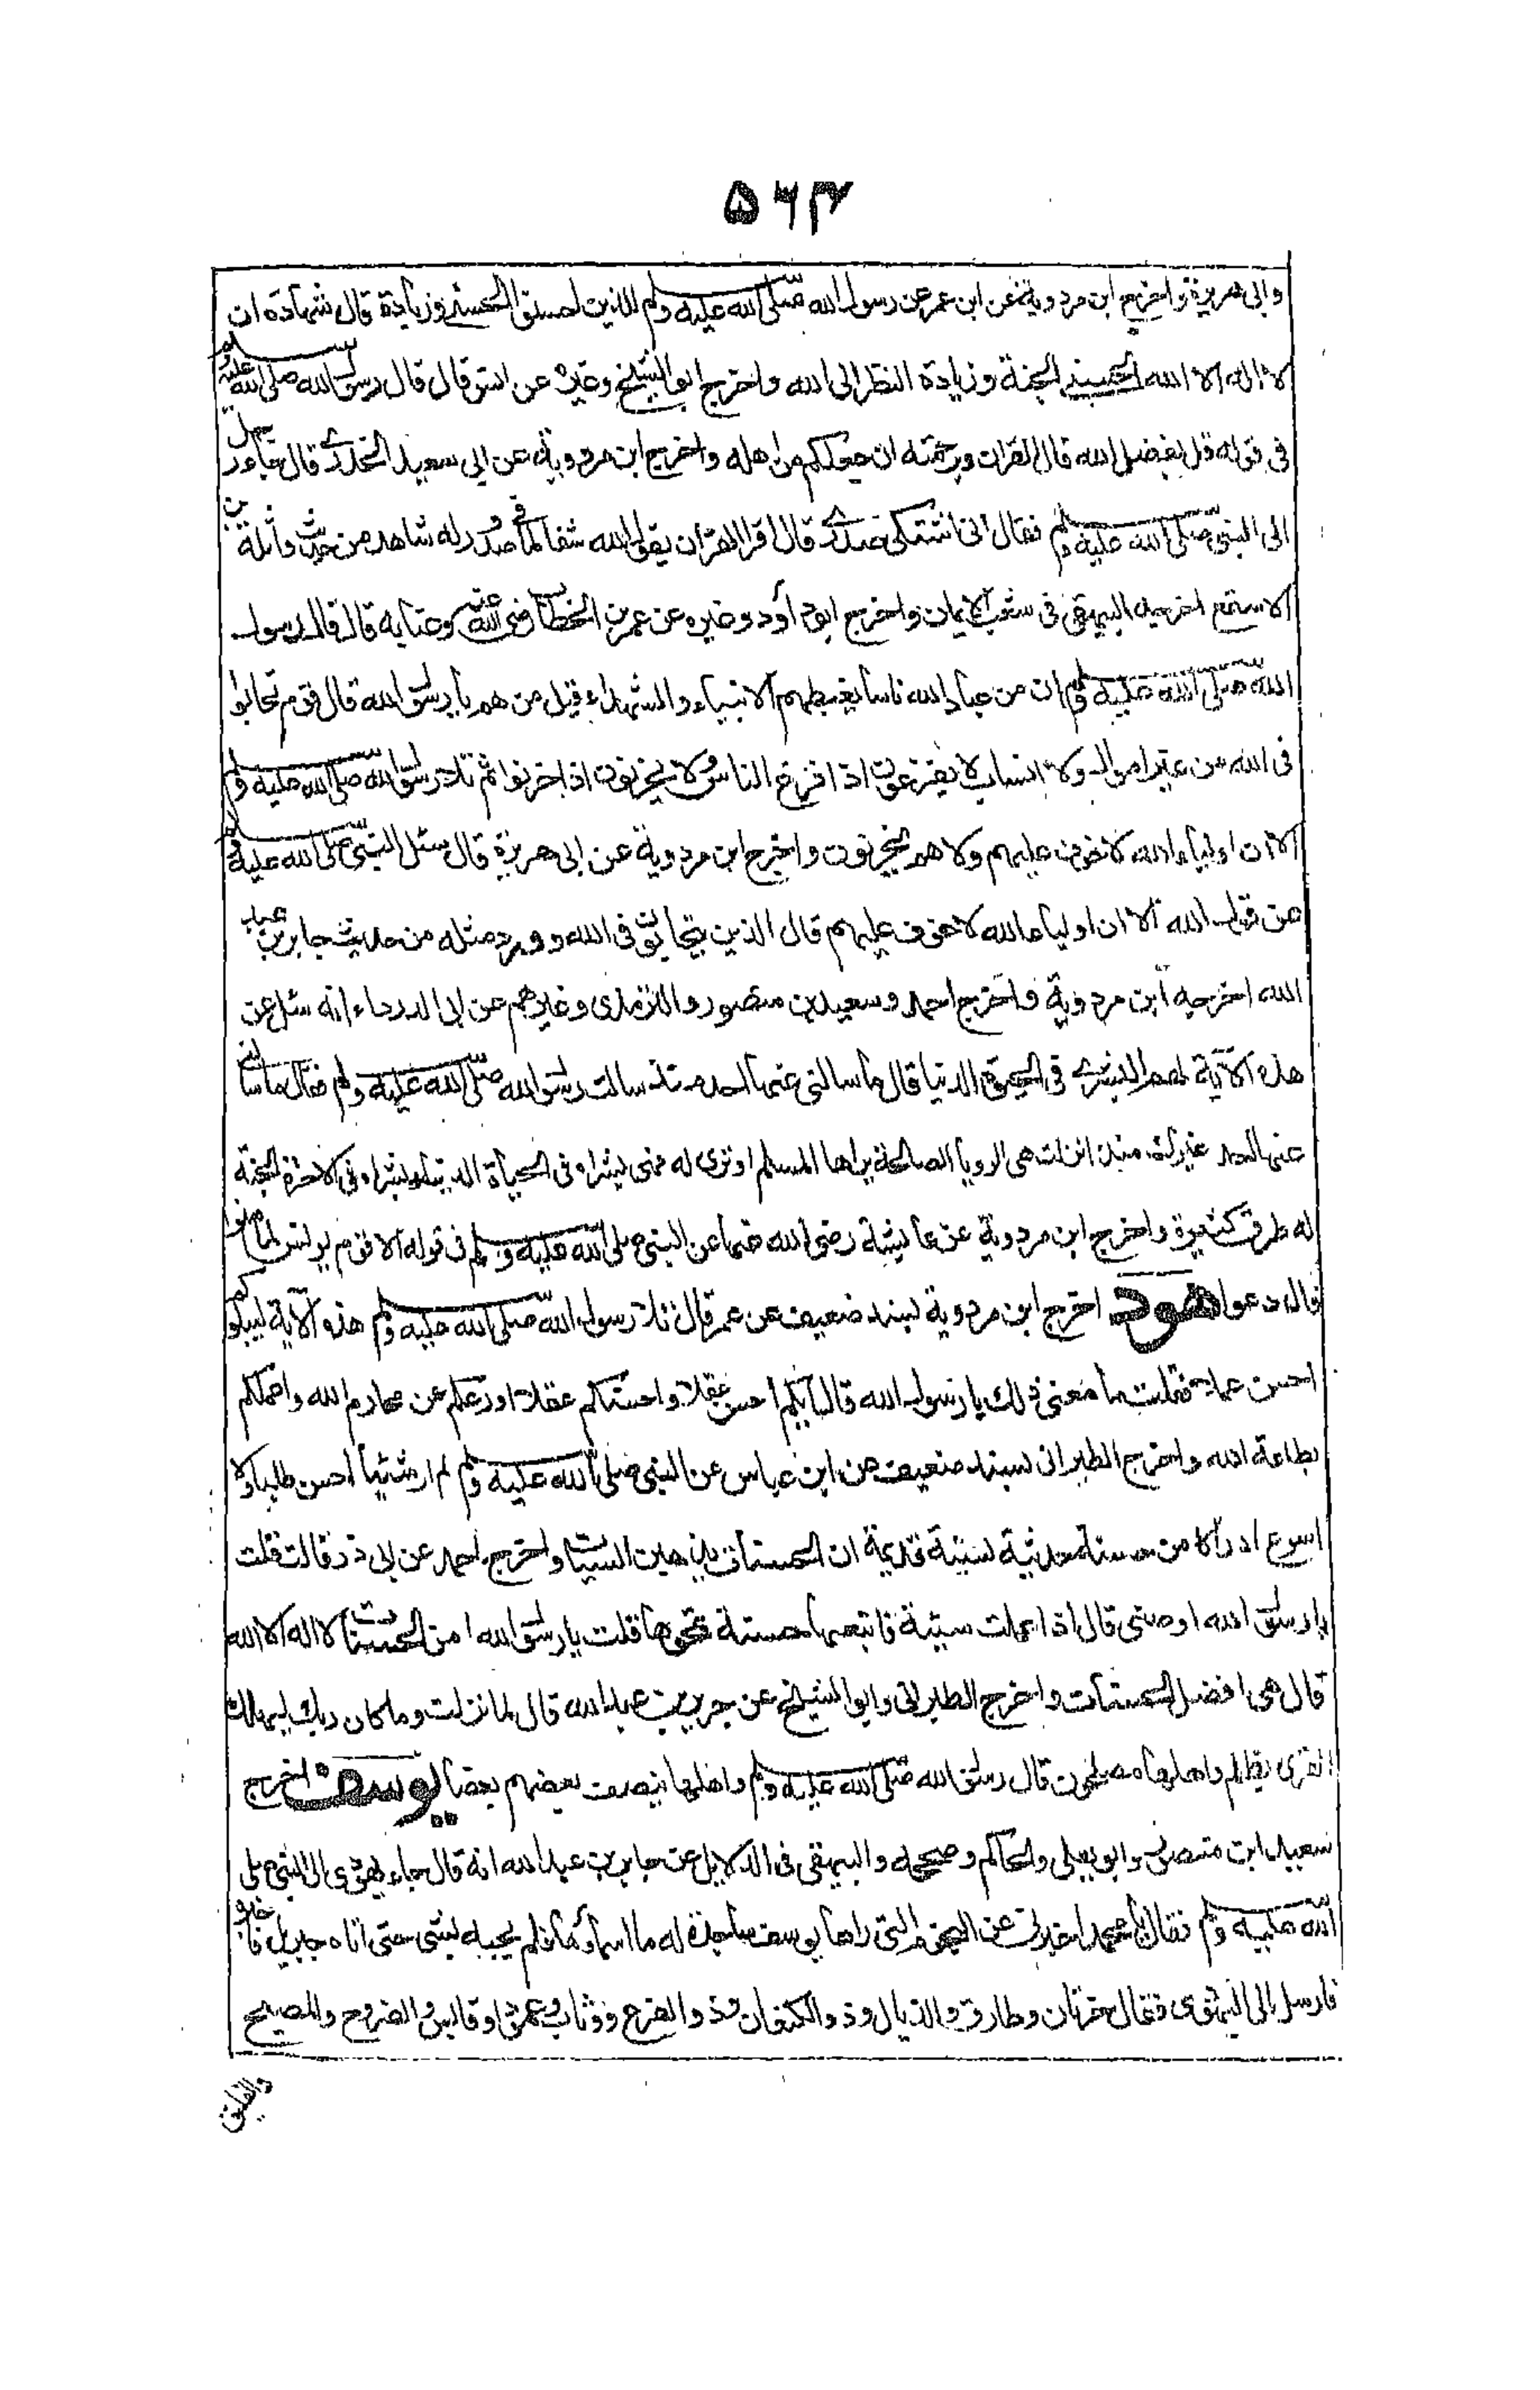 ۵۶۳
وابى هريرة واخرج ابن مردوية عن ابن عمر عن رسول الله صلى الله عليه وسلم للذين احسنوا الحسنى وزيادة قال شهادة ان
لا اله الا الله الحسنى الجنة وزيادة النظر الى الله واخرج ابو الشيخ وغيره عن انس قال قال رسول الله صلى الله عليه وسلم
فى قوله قل بفضل الله قال القران وبرحمته ان جعلكم من اهله واخرج ابن مردوية عن ابى سعيد الخدرى قال جاء رجل
الى النبى صلى الله عليه وسلم فقال انى اشتكى صدرى قال اقرا القران يقول الله شفا لما فى الصدور له شاهد من حديث واثلة بن
الاسقع اخرجه البيهقى فى شعب الايمان واخرج ابو داود وغيره عن عمر بن الخطاب رضى الله عنه قال قال رسول
الله صلى الله عليه وسلم ان من عباد الله ناسا يغبطهم الانبياء والشهداء قيل من هم يا رسول الله قال قوم تحابوا
فى الله من غير اموال ولا انساب لا يفزعون اذا فزع الناس ولا يحزنون اذا حزنوا ثم تلا رسول الله صلى الله عليه وسلم
الا ان اولياء الله لا خوف عليهم ولا هم يحزنون واخرج ابن مردوية عن ابى هريرة قال سئل النبى صلى الله عليه وسلم
عن قول الله الا ان اولياء الله لا خوف عليهم قال الذين يتحابون فى الله وورد مثله من حديث جابر بن عبد
الله اخرجه ابن مردوية واخرج احمد وسعيد بن منصور والترمذى وغيرهم عن ابى الدرداء انه سئل عن
هذه الآية لهم البشرى فى الحيوة الدنيا قال ما سالنى عنها احد منذ سالت رسول الله صلى الله عليه وسلم فقال ما سالنى
عنها احد غيرك منذ انزلت هى الرويا الصالحة يراها المسلم او ترى له فهى بشراه فى الحياة الدنيا وبشراه فى الاخرة الجنة
له طرق كثيرة واخرج ابن مردوية عن عائشة رضى الله عنها عن النبى صلى الله عليه وسلم فى قوله الا قوم يونس لما امنوا
قال دعوا هود اخرج ابن مردوية بسند ضعيف عن عمر قال تلا رسول الله صلى الله عليه وسلم هذه الآية ليبلوكم
احسن عملا فقلت ما معنى ذلك يا رسول الله قال ايكم احسن عقلا واحسنكم عقلا اورعكم عن محارم الله واعملكم
بطاعة الله واخرج الطبرانى بسند ضعيف عن ابن عباس عن النبى صلى الله عليه وسلم لم ار شيئا احسن طلبا ولا
اسرع ادراكا من حسنة حديثة لسيئة قديمة ان الحسنات يذهبن السيئات واخرج احمد عن ابى ذر قال قلت
يا رسول الله اوصنى قال اذا عملت سيئة فاتبعها حسنة تمحوها قلت يا رسول الله امن الحسنات لا اله الا الله
قال هى افضل الحسنات واخرج الطبرانى وابو الشيخ عن جرير بن عبد الله قال لما نزلت وما كان ربك ليهلك
القرى بظلم واهلها مصلحون قال رسول الله صلى الله عليه وسلم واهلها ينصف بعضهم بعضا يوسف اخرج
سعيد ابن منصور وابو يعلى والحاكم وصححه والبيهقى فى الدلايل عن جابر بن عبد الله انه قال جاء يهودى الى النبى صلى
الله عليه وسلم فقال يا محمد اخبرنى عن النجوم التى راها يوسف ساجدة له ما اسماؤها فلم يجبه بشى حتى اتاه جبريل فاخبره
فارسل الى اليهودى فقال خرتان وطارق والذيال وذو الكنفان وذو الفرع ووثاب وعمودان وقابس والضروح والمصبح
والفيلق